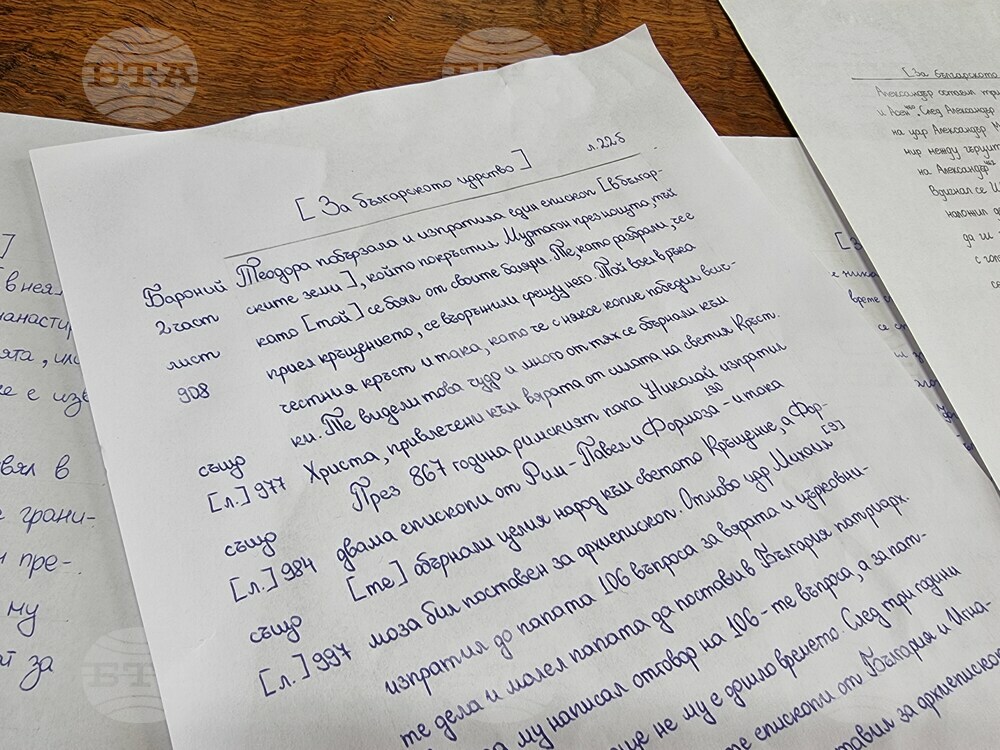 БТА
БТА
[За българското царство]
л.22б
Бароний
2 част
лист
908
също
[л.] 977
също
[л.] 984
също
[л.] 997
Теодора побързала и изпратила един епископ [в българ-
ските земи], който покръстил Муртагон през нощта, тъй
като [той] се боял от своите боляри. Те, като разбрали, че е
приел кръщението, се въоръжили срещу него. Той взел в ръка
честния кръст и така, като че с някое копие победил вси-
ки. Те видели това чудо и много от тях се обърнали към
Христа, привлечени към вярата от силата на светия Кръст.
През 867 година римският папа Николай изпратил
двама епископи от Рим - Павел и Формоза 190 - и така
[те] обърнали целия народ към светото Кръщение, а Фор-
моза бил поставен за архиепископ. Отново цар Михаил [9]
изпратил до папата 106 въпроса за вярата и църковни-
те дела и молел папата да постави в България патриарх.
му написал отговор на 106-те въпроса, а за пат-
още не му е дошло времето. След три години
те епископи от България и Игна-
за архиепископ
]
в неял
манастир
е изв
вял в
е грани-
пре-
му
за
[За българското
Александър
и Асен. След Александър
на цар Александър
мир между
на Александър
Вдигнал се
наложил
да
с
[З
е
се
БТА
БТА